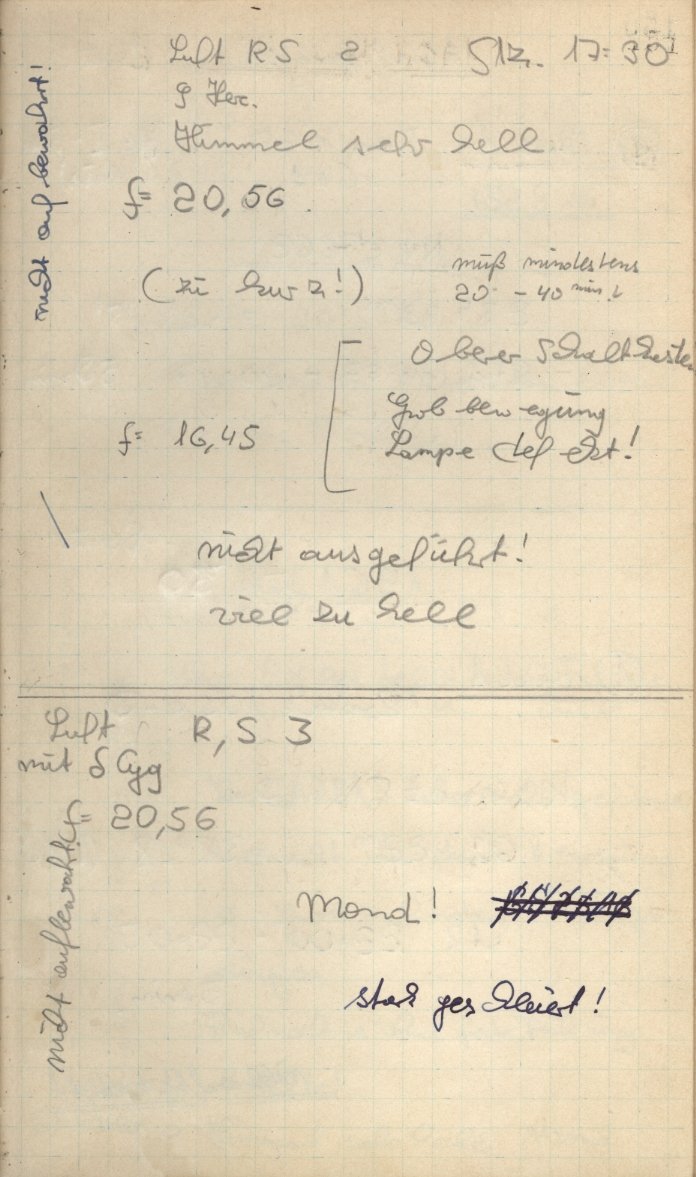 Luft RS 2 Stz. 17:30
Her.
Himmel sehr hell
f= 20,56
(zu kurz!) muß mindestens
20 - 40 min!
Oberer Schaltkasten
Grobbewegung
f= 16,45 Lampe defekt!
nicht ausgeführt!
viel zu hell
nicht aufbewahrt!
Luft R,S 3
mit δ Cyg
f= 20,56
Mond!
stark geschleiert!
nicht aufbewahrt!